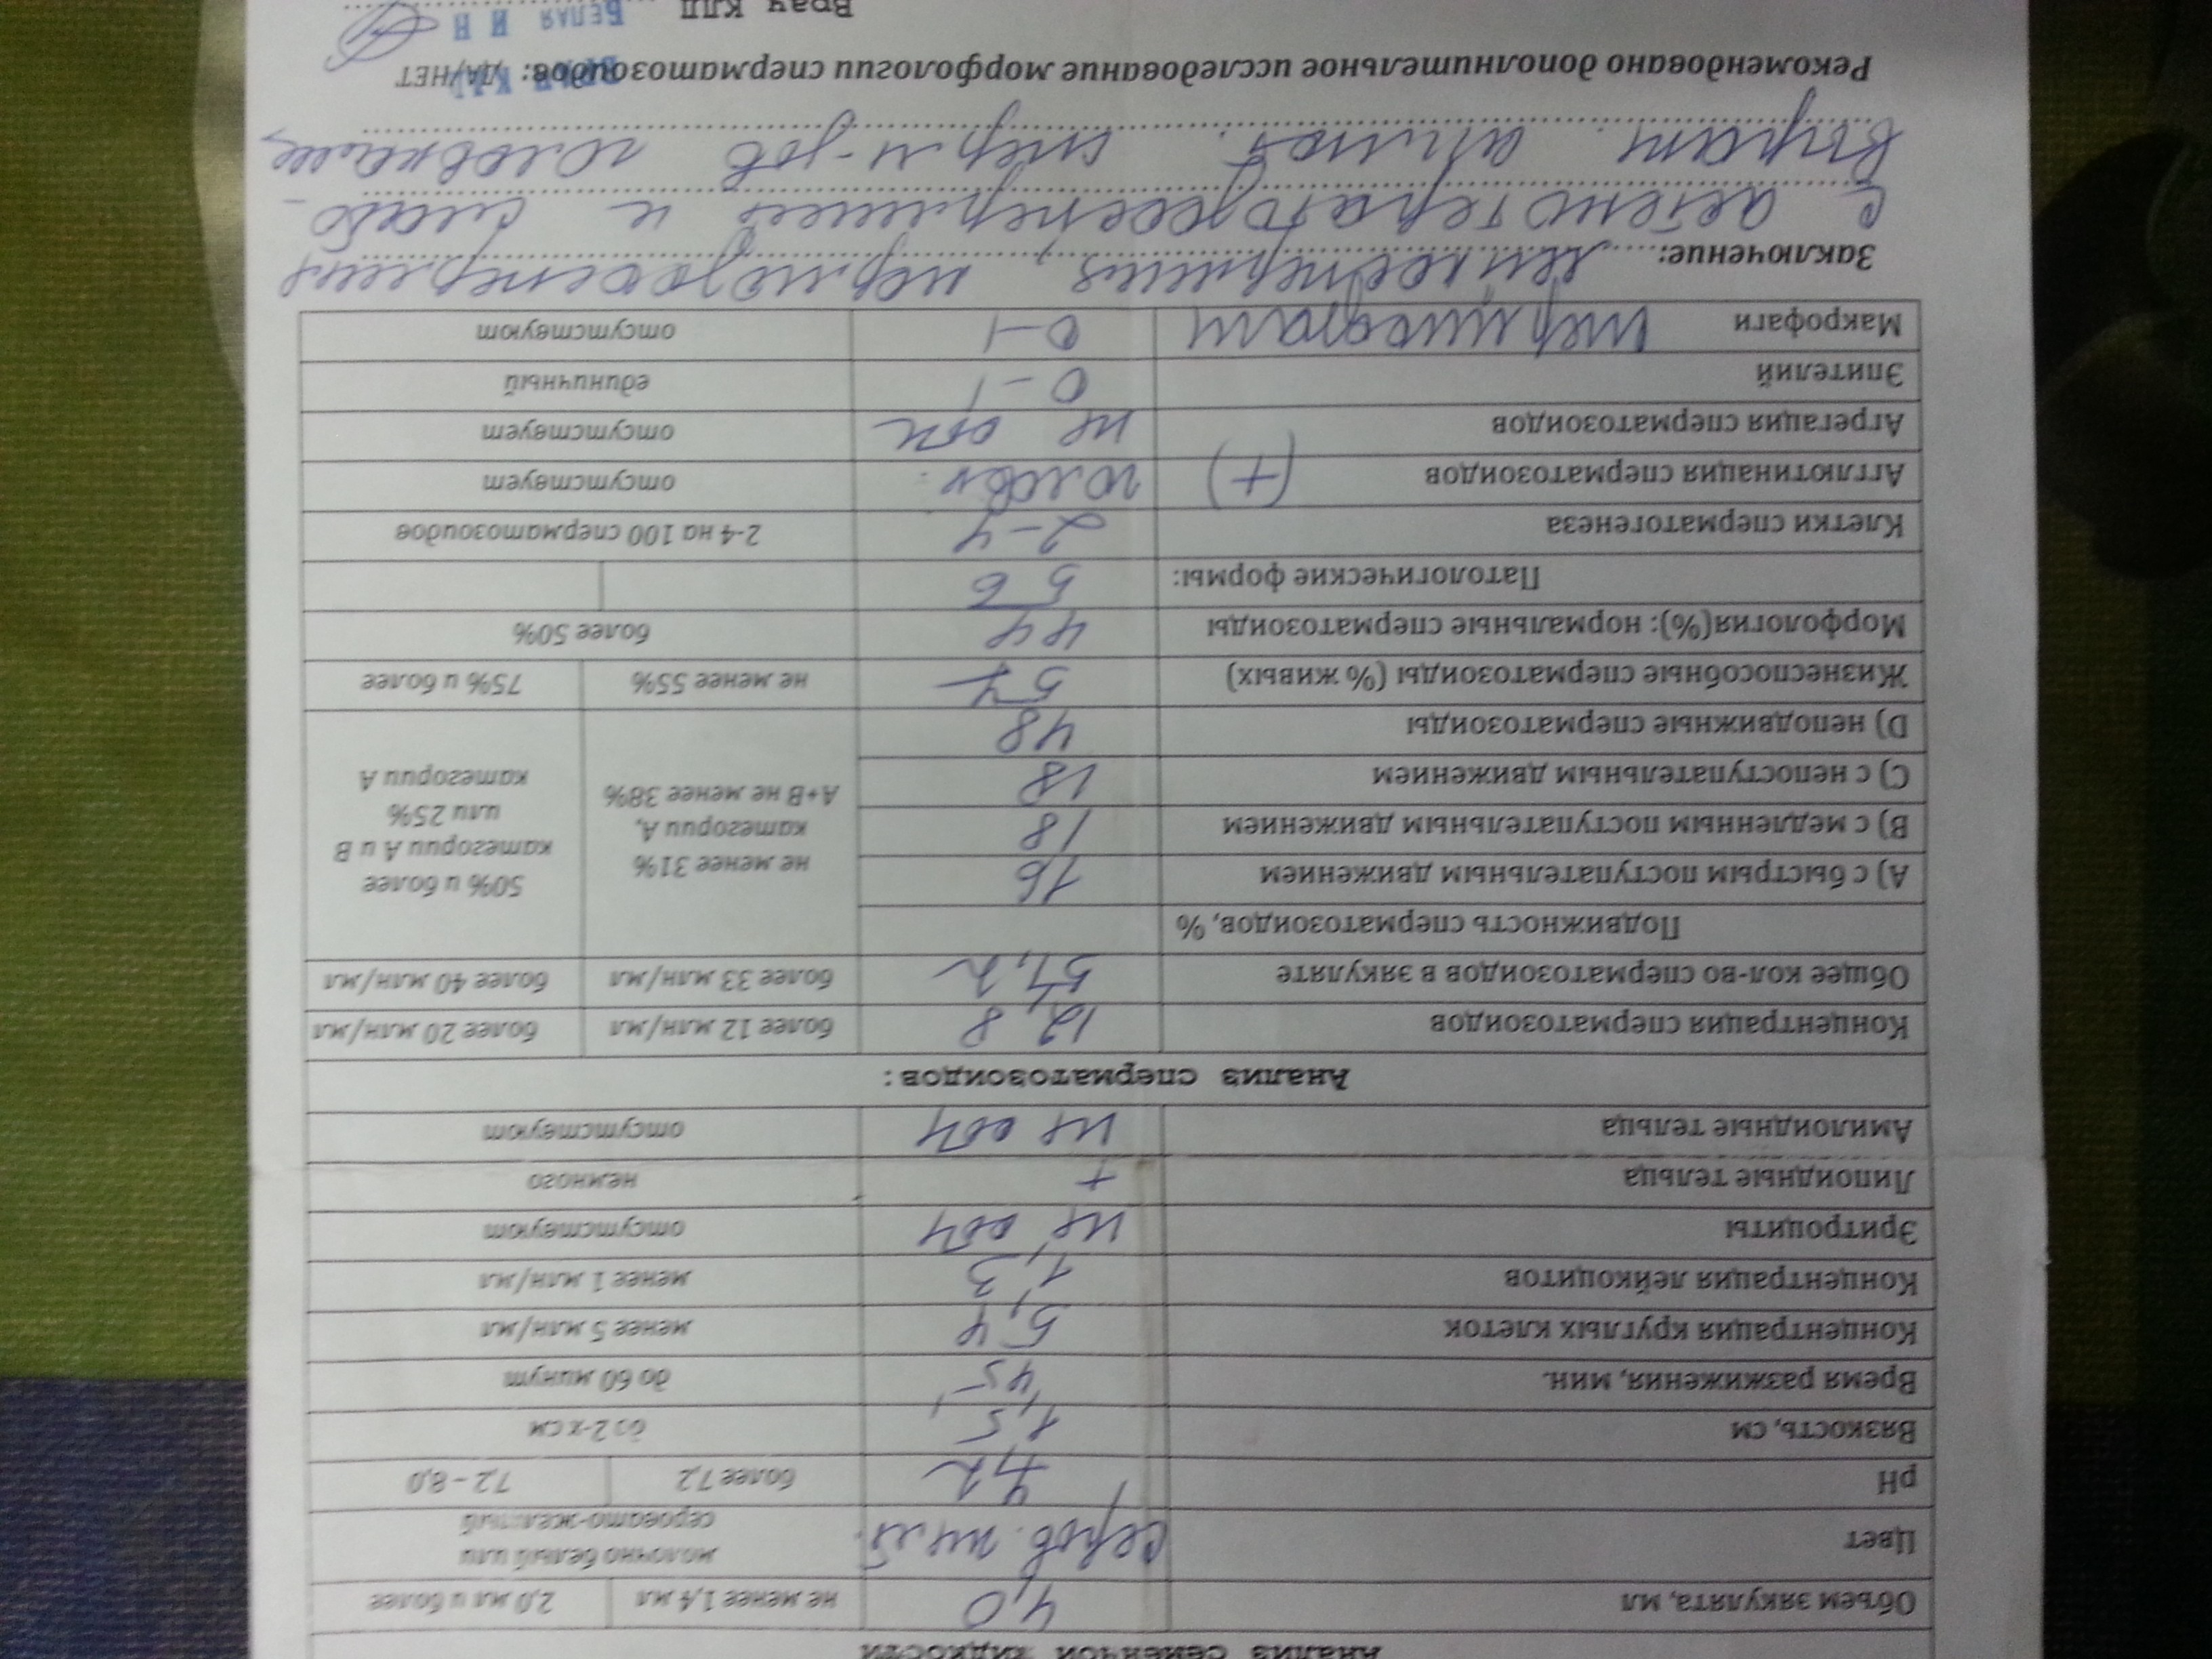 Анализ семенной жидкости
Объем эякулята, мл 4,0 не менее 1,4 мл 2,0 мл и более
Цвет молочно белый или серовато-желтый
pH 7,2 более 7,2 7,2 – 8,0
Вязкость, см 1,5 до 2-х см
Время разжижения, мин. 45 до 60 минут
Концентрация круглых клеток 5,4 менее 5 млн/мл
Концентрация лейкоцитов 1,3 менее 1 млн/мл
Эритроциты не обн отсутствуют
Липоидные тельца + немного
Амилоидные тельца не обн отсутствуют
Анализ сперматозоидов:
Концентрация сперматозоидов 12,8 более 12 млн/мл более 20 млн/мл
Общее кол-во сперматозоидов в эякуляте 51,2 более 33 млн/мл более 40 млн/мл
Подвижность сперматозоидов, %
А) с быстрым поступательным движением 16 не менее 31% категории А, А+В не менее 38% 50% и более категории А и В или 25% категории А
В) с медленным поступательным движением 18
С) с непоступательным движением 18
D) неподвижные сперматозоиды 48
Жизнеспособные сперматозоиды (% живых) 57 не менее 55% 75% и более
Морфология(%): нормальные сперматозоиды 44 более 50%
Патологические формы: 56
Клетки сперматогенеза 2-4 2-4 на 100 сперматозоидов
Агглютинация сперматозоидов (+) головк. отсутствует
Агрегация сперматозоидов не обн отсутствует
Эпителий 0-1 единичный
Макрофаги 0-1 отсутствуют
Заключение: нормозооспермия
с астенотератозооспермией и слабо-
выраж. аглют. сперм-дов головками
Рекомендовано дополнительное исследование морфологии сперматозоидов: ДА/НЕТ
Врач КЛД БЕЛАЯ И Н